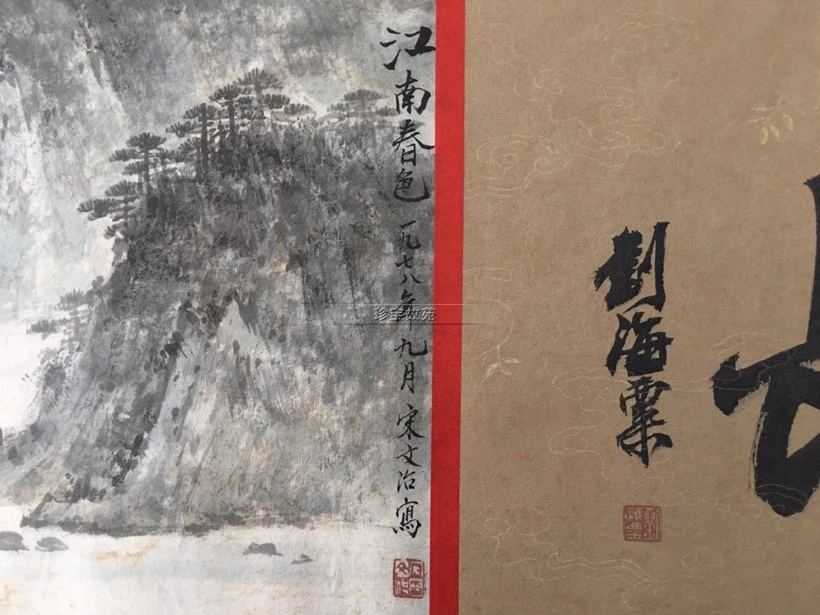 江南春色 一九七八年九月 宋文治寫
劉海粟
珍宝故苑